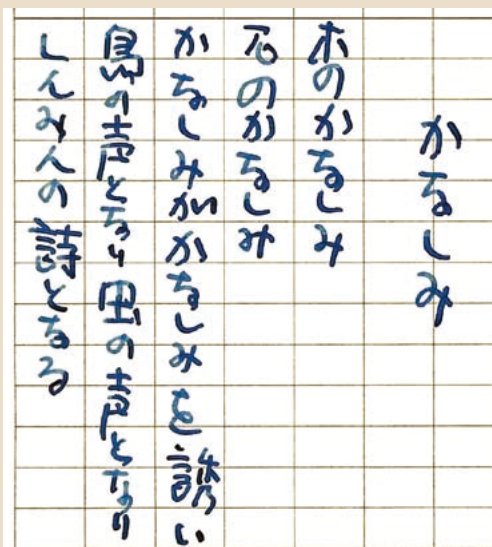 かなしみ
木のかなしみ
石のかなしみ
かなしみがかなしみを誘い
鳥の声となり 虫の声となり
しんみんの詩となる